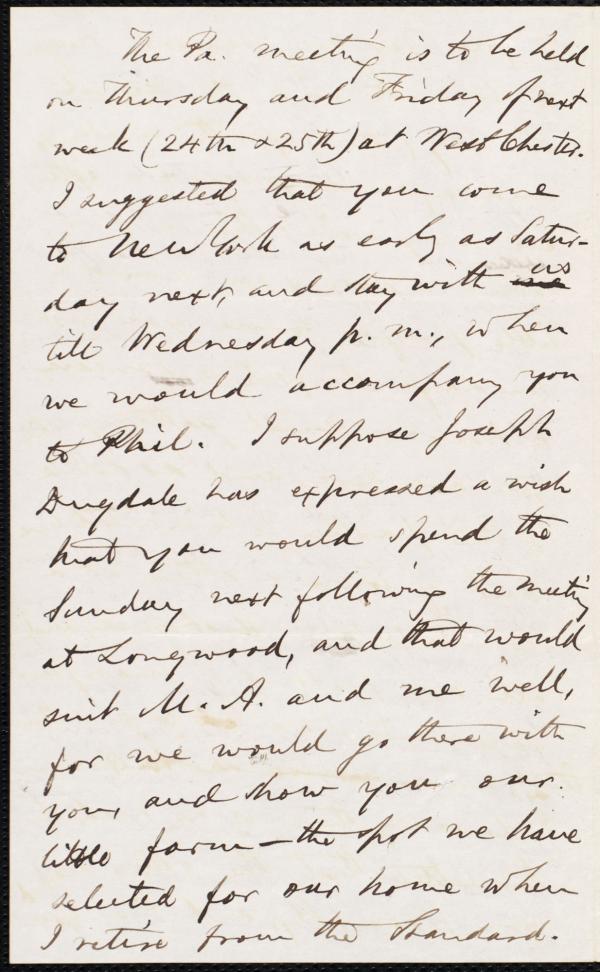 The Pa. meeting is to be held
on Thursday and Friday of next
week (24th & 25th) at West Chester.
I suggested that you come
to New York as early as Satur-
day next, and stay with me us
till Wednesday p. m., when
we would accompany you
to Phil. I suppose Joseph
Dugdale has expressed a wish
that you would spend the
Sunday next following the meeting
at Longwood, and that would
suit M. A. and me well,
for we would go there with
you, and show you our
little farm—the spot we have
selected for our home when
I retire from the Standard.